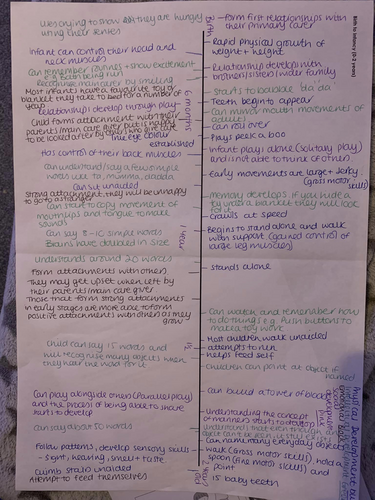 Birth to Infancy (0-2 years)
using crying to show they are hungry
using their senses
Infant can control their head and
neck muscles
Can remember routines + show excitement
e.g. Bath being run
Recognise main carer by smelling
Most infants have a favourite toy or
blanket they take to bed for a number of
Relationships develop through play
Child forms attachment with their
parents/main care giver but is happy
to be looked after by others who give care
True eye colour
established
Has control of their back muscles
Can understand/say a few simple
words like to, mumma, dada
Can sit unaided
Strong attachment they will be unhappy
to go to a stranger
Can start to copy movement of
mouth/lips and tongue to make
sounds
Can say 8-10 simple words
Brains have doubled in size
understands around 20 words
Form attachments with others
They may get upset when left by
their parents/main care giver
Those that form strong attachments
in early stages are more able to form
positive attachments with others as they
grow
Child can say 15 words and
will recognise many objects when
they hear the word for it
Can play alongside others (Parallel play)
and the process of being able to share
starts to develop
Can say about 50 words
Follow patterns, develop sensory skills
- sight, hearing, smell + taste
Climb stairs unaided
Attempt to feed themselves
Birth
6 months
1 year
1½
2 years
- form first relationships with
their primary carer
Rapid physical growth of
weight + height
Relationships develop with
brothers/sisters/wider family
starts to babble 'ba da'
Teeth begin to appear
Can mirror mouth movements of
adults
Can roll over
Plays peek a boo
Infant plays alone (solitary play)
and is not able to think of others
Early movements are large + jerky
(gross motor
skills)
Memory develops if you hide a
toy with a blanket they will look
for it
Crawls at speed
Begins to stand alone and walk
with support (gained control of
large leg muscles)
stands alone
Can watch and remember how
to do things e.g. Push buttons to
make toy work
Most children walk unaided
attempts to run
helps feed self
Children can point at object if
named
Can build a tower of blocks
Understanding the concept
of manners starts to develop
Understands that even though
Can name many everyday objects
walk (Gross motor skills), hold a
spoon (fine motor skills) and
point
15 baby teeth